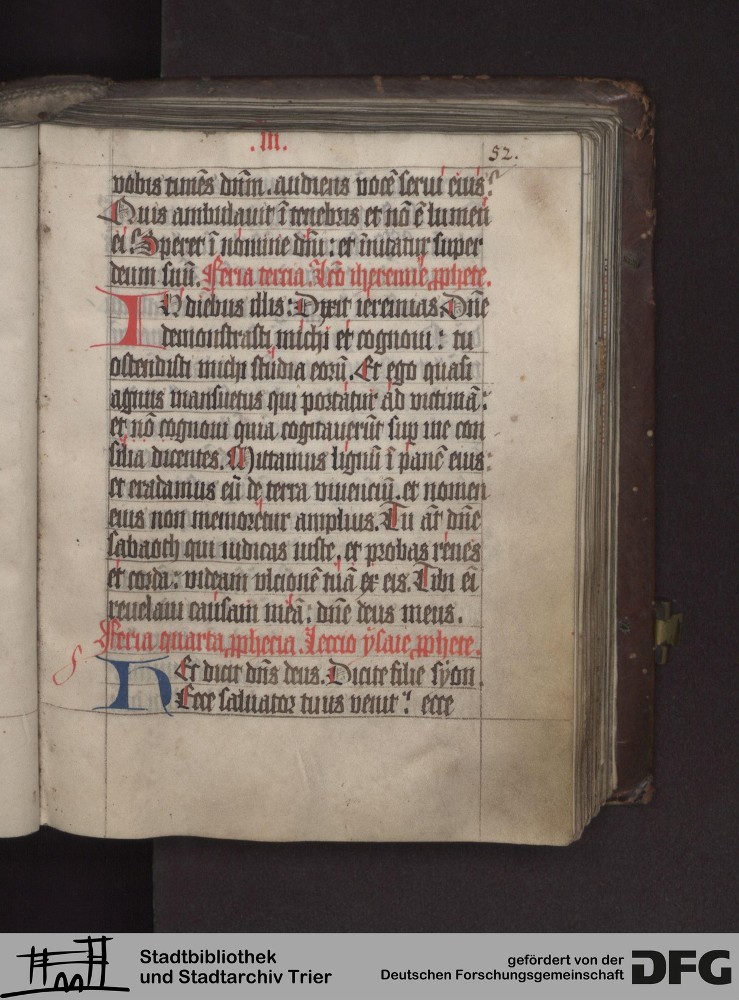 .III.
52.
vobis timēs dn̄m. audiens vocē serui eius?
Quis ambulauit ī tenebris et nō ē lumen
ei. Speret ī nomine dn̄i: et īnitatur super
deum suū. Feria tercia. Lcō iheremie ꝓphete.
IN diebus illis: Dixit ieremias. Dn̄e
demonstrasti michi et cognoui: tu
ostendisti michi studia eorū. Et ego quasi
agnus mansuetus qui portatur ad victimā:
et nō cognoui quia cogitauerūt sup me con
silia dicentes. Mittamus lignū ī panē eius:
et eradamus eū de terra viuenciū. et nomen
eius non memoretur amplius. Tu aūt dn̄e
sabaoth qui iudicas iuste. et probas renes
et corda: videam vlcionē tuā ex eis. Tibi eī
reuelaui causam meā: dn̄e deus meus.
Feria quarta ꝓphecia. Leccio ÿsaie ꝓphete.
Hec dicit dn̄s deus. Dicite filie sÿon.
Ecce saluator tuus venit: ecce
Stadtbibliothek
und Stadtarchiv Trier
gefördert von der
Deutschen Forschungsgemeinschaft
DFG